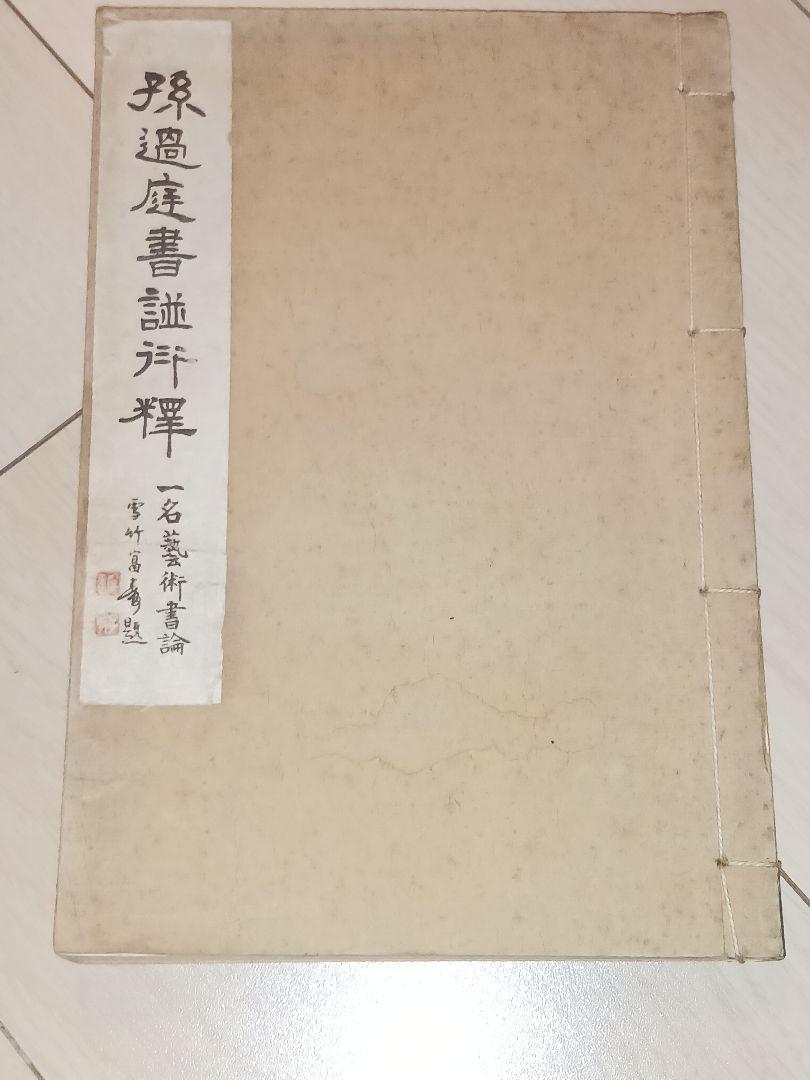 孫過庭書譜衍釋
一名藝術書論
雪竹富壽題